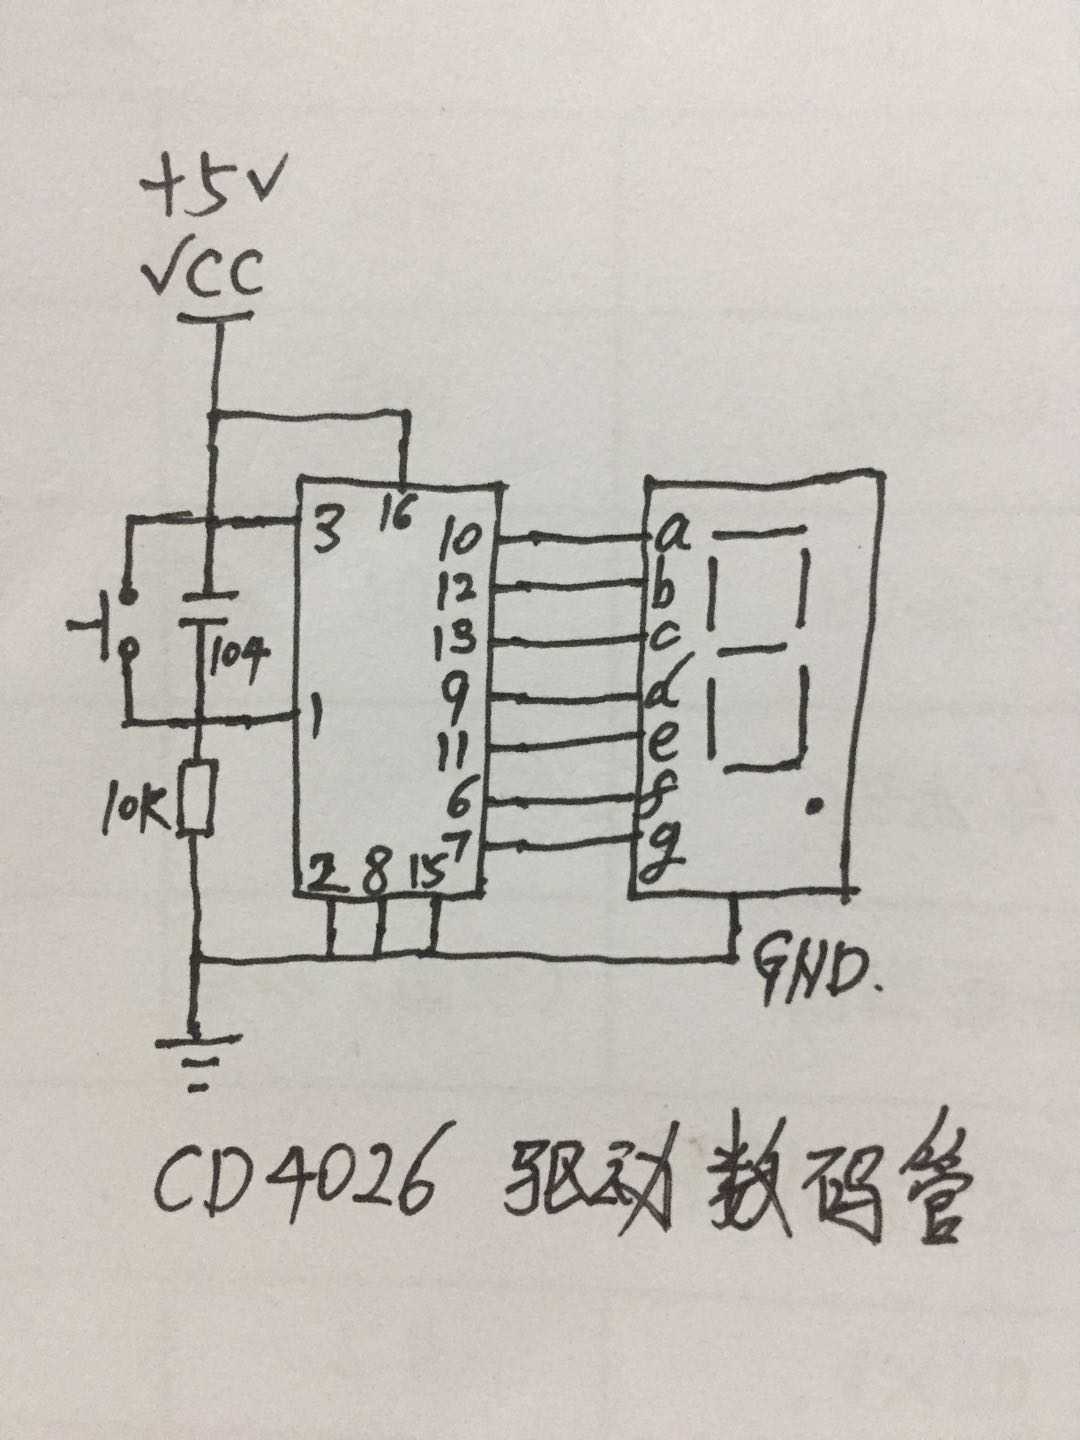 +5V
VCC
3
16
10
a
12
b
13
c
104
9
d
1
11
e
10K
6
f
7
g
2 8 15
GND.
CD4026 驱动数码管